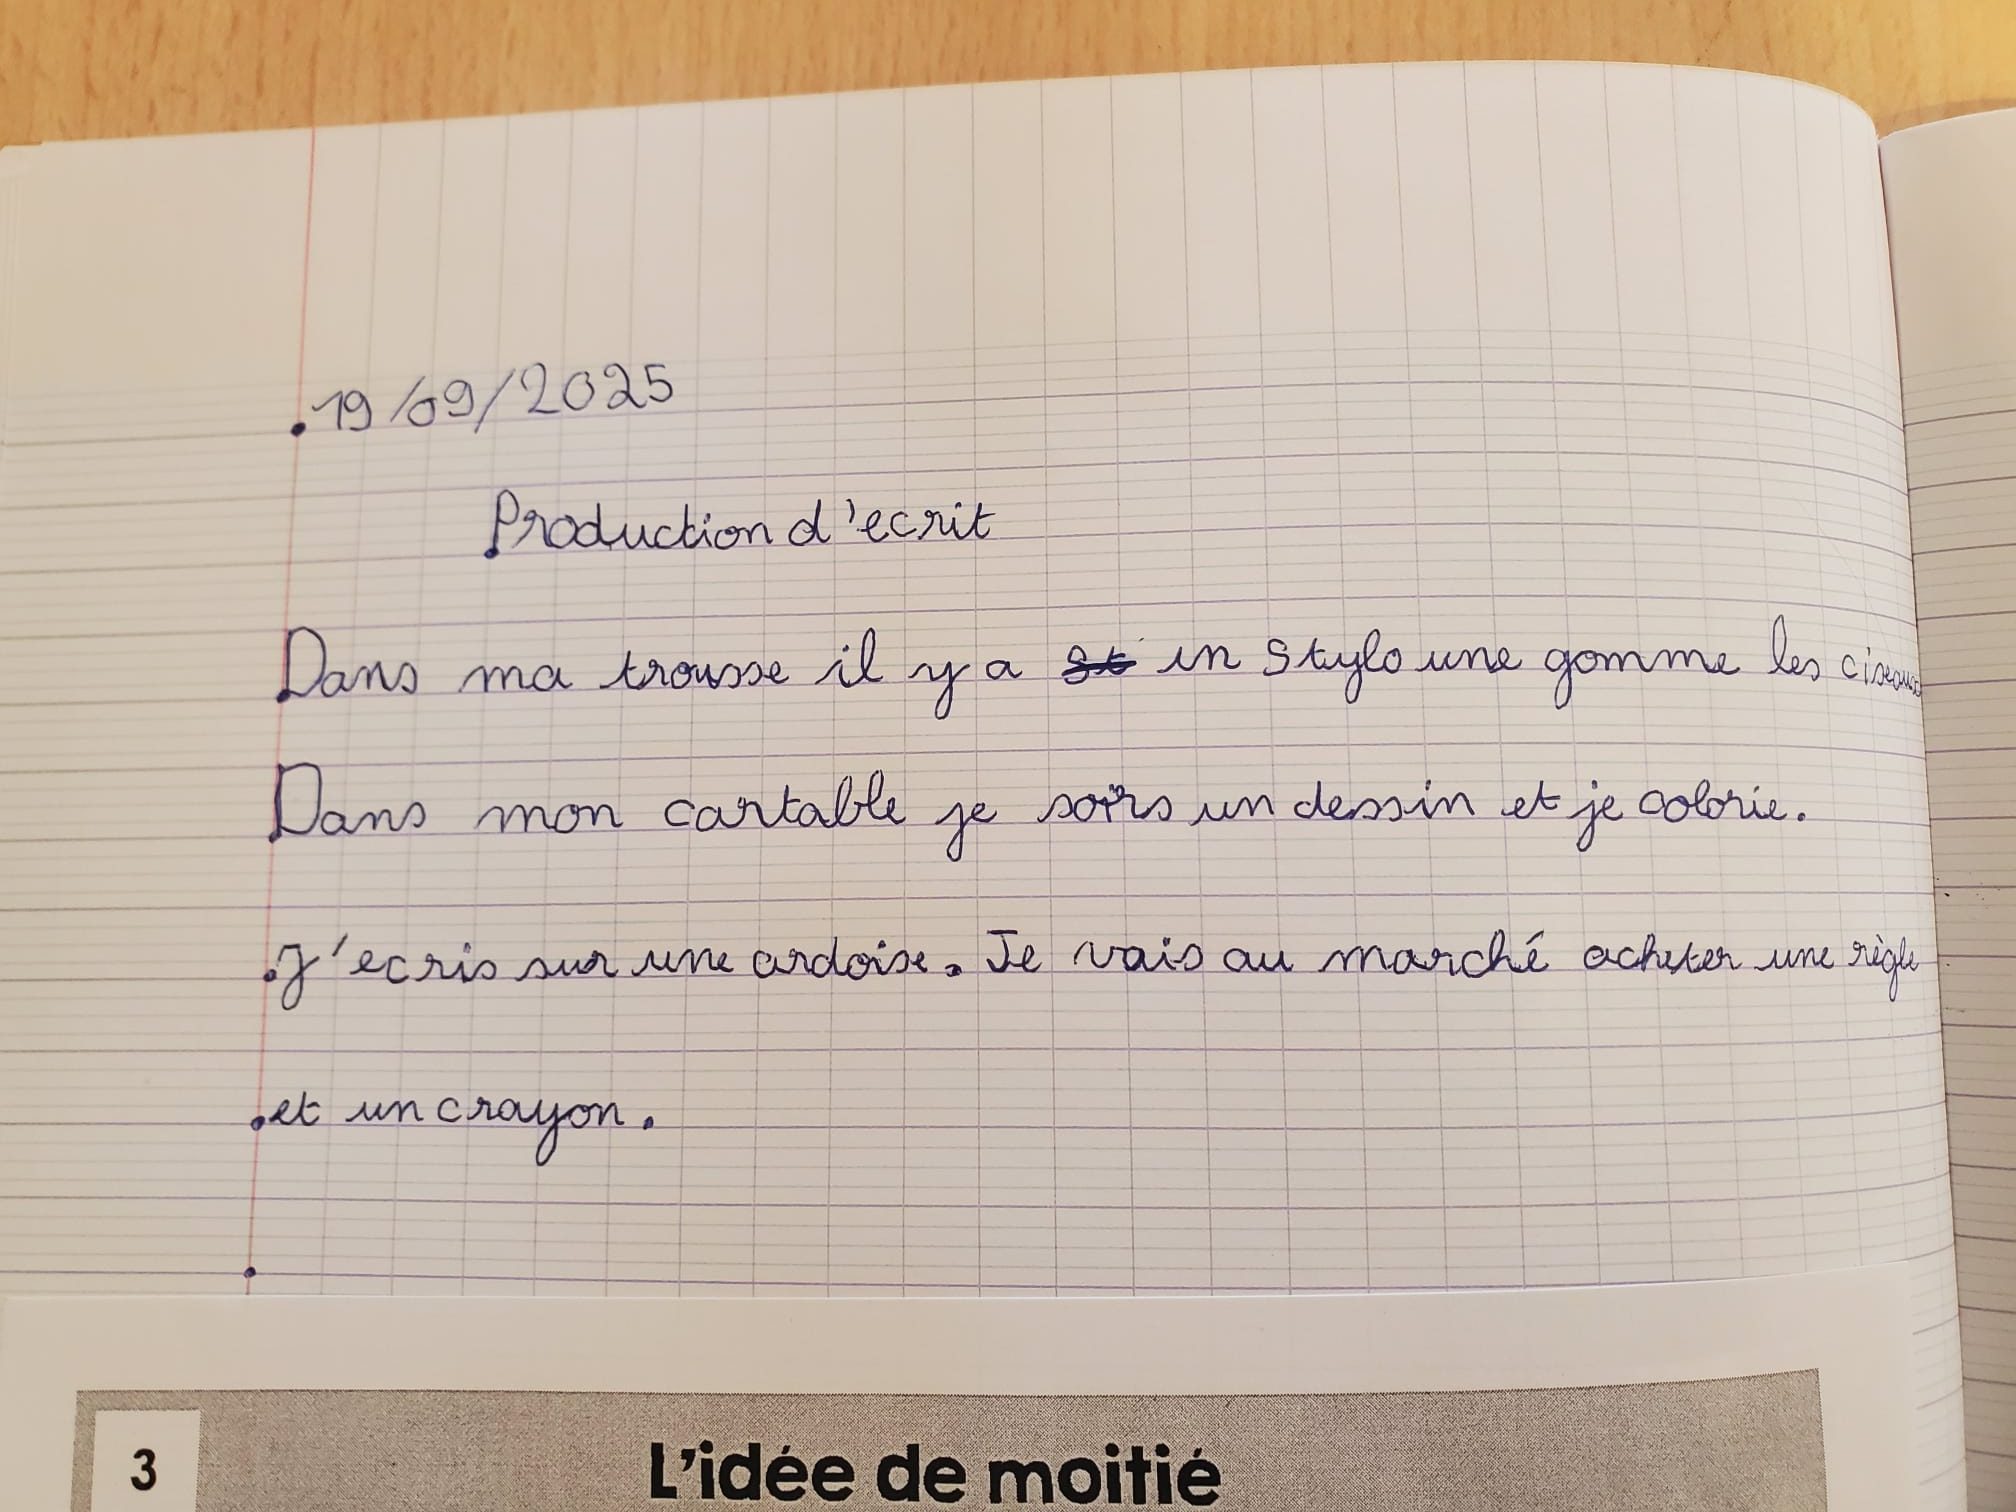 19/09/2025
Production d'ecrit
Dans ma trousse il y a st un stylo une gomme les ciseaux
Dans mon cartable je soirs un dessin et je colorie.
J'ecris sur une ardoise. Je vais au marché acheter une règle
et un crayon.
3
L'idée de moitié